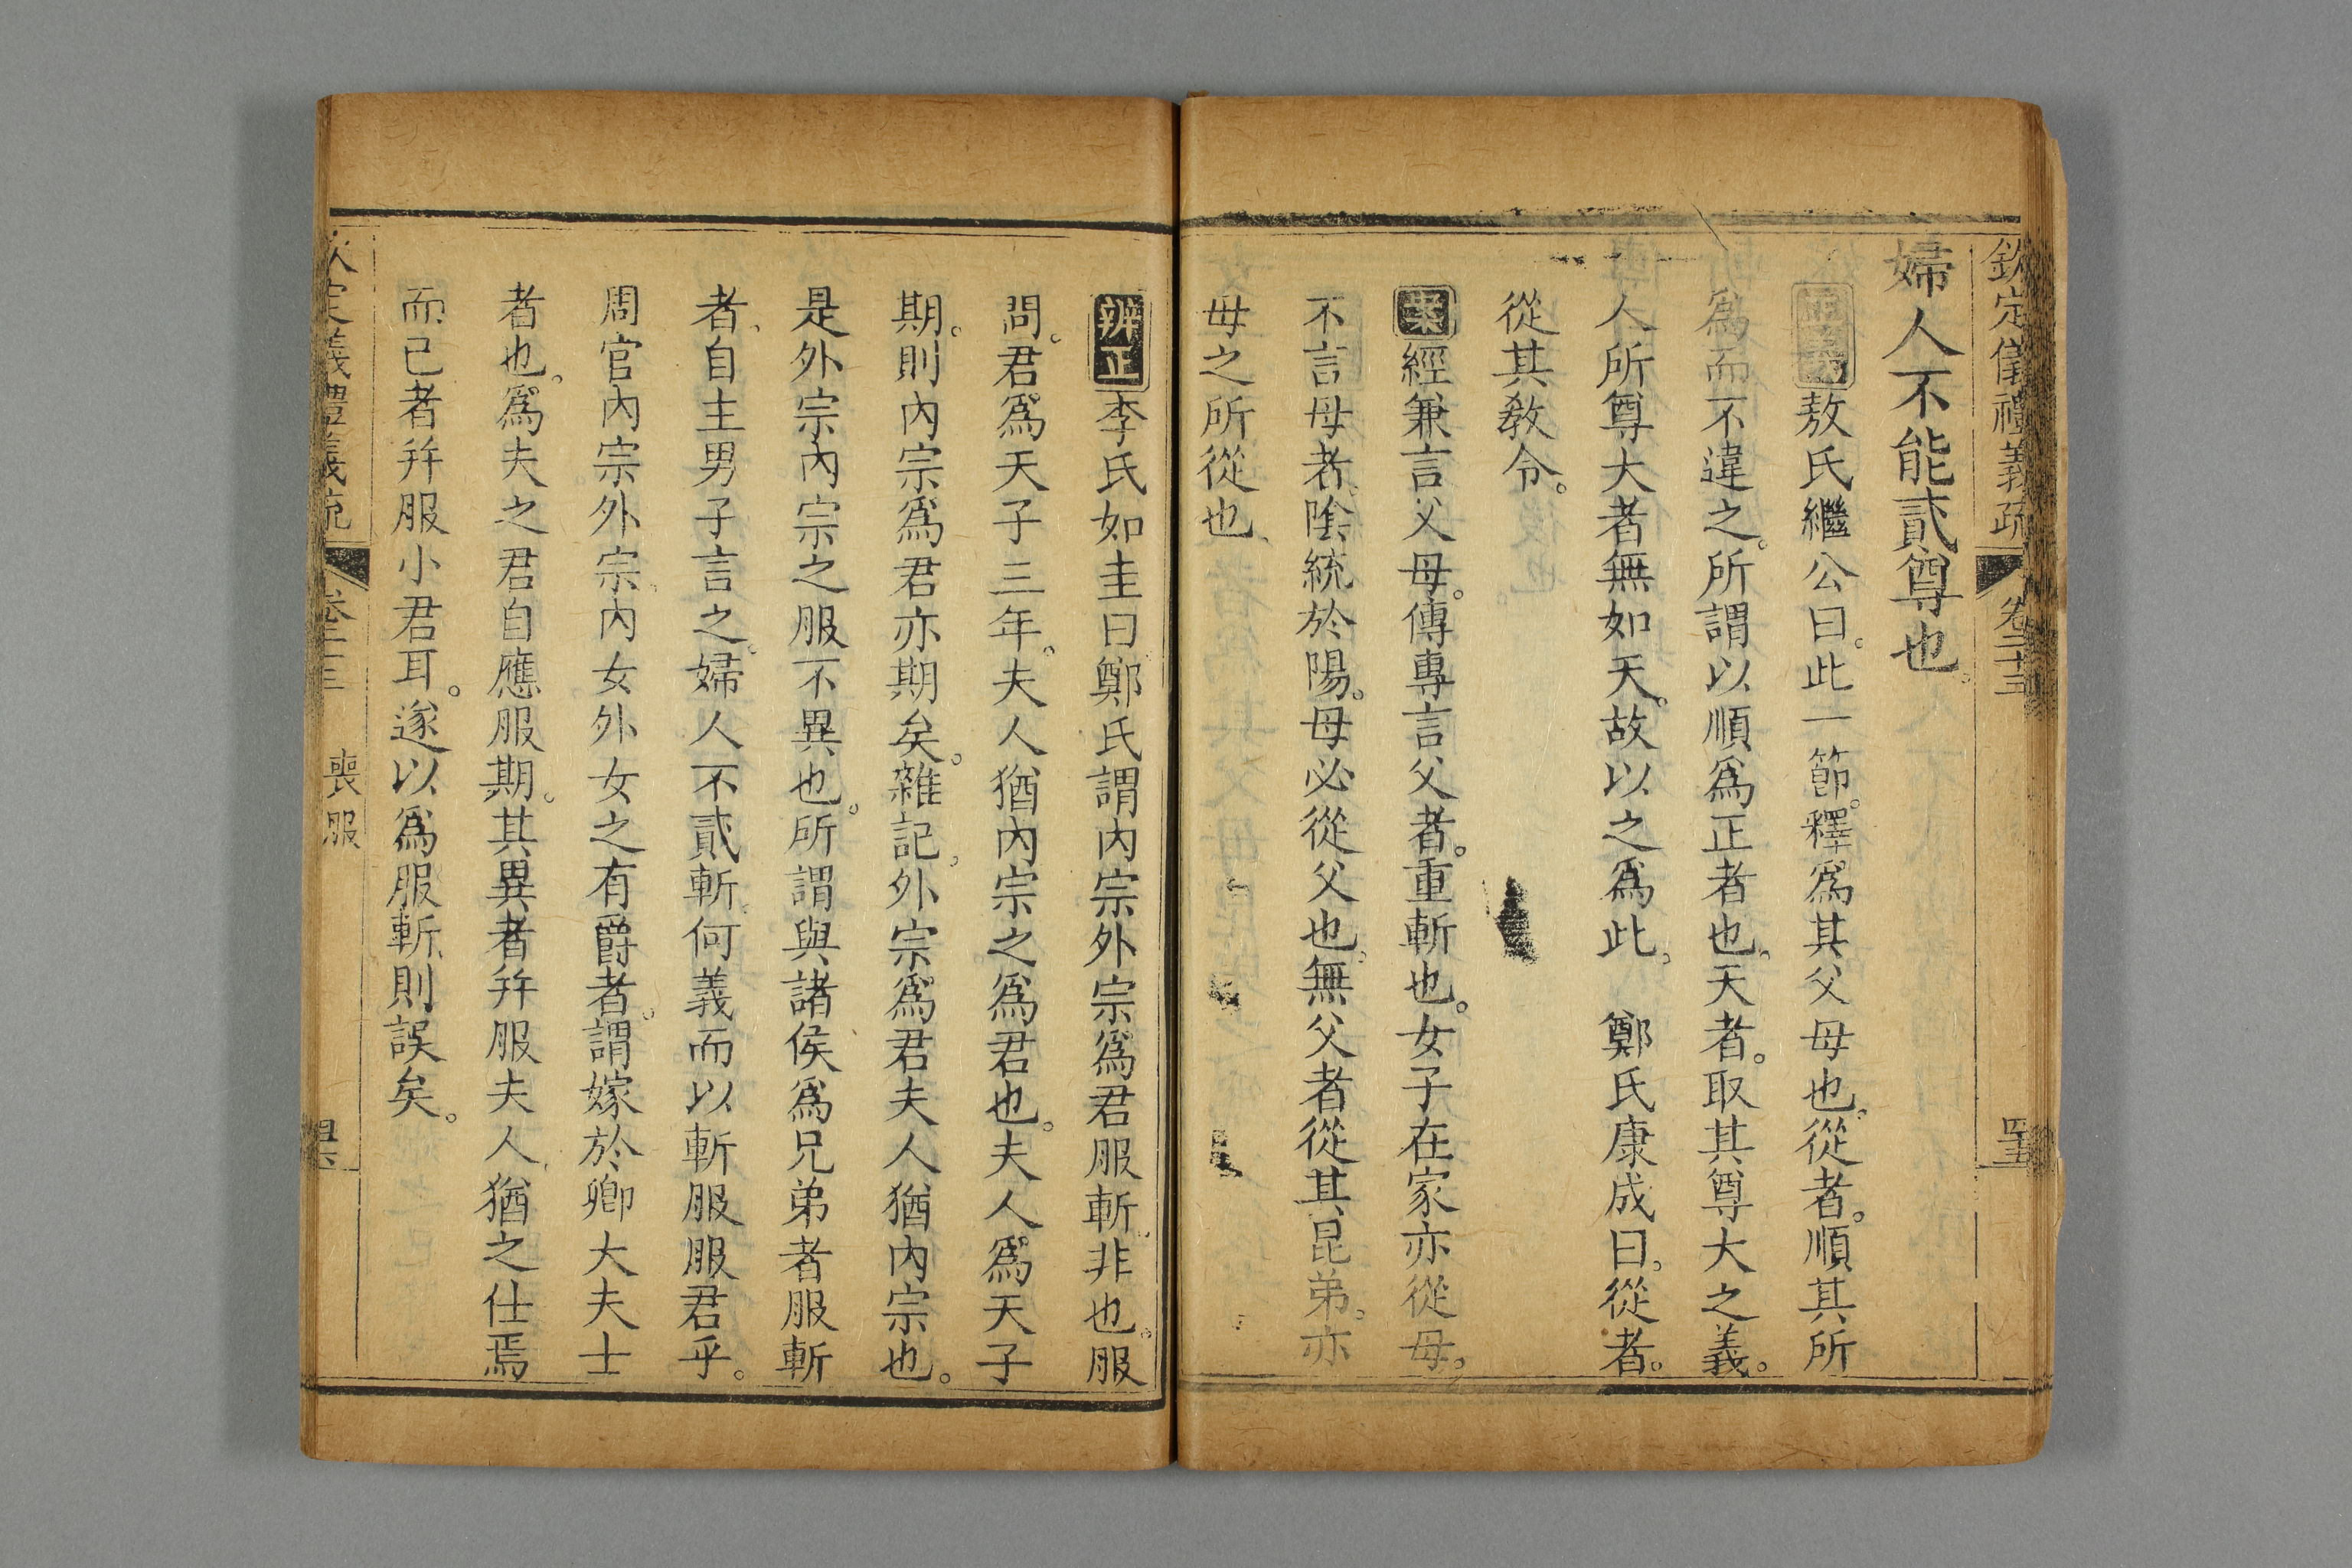 欽定儀禮義疏 卷二十三 四十五
婦人不能貳尊也。
正義敖氏繼公曰。此一節。釋爲其父母也。從者。順其所
爲而不違之。所謂以順爲正者也。天者。取其尊大之義。
人所尊大者無如天。故以之爲此。 鄭氏康成曰。從者。
從其教令。
案經兼言父母。傳專言父者。重斬也。女子在家亦從母。
不言母者。陰統於陽。母必從父也。無父者從其昆弟。亦
母之所從也、
辨正李氏如圭曰鄭氏謂内宗外宗爲君服斬。非也。服
問。君爲天子三年。夫人猶内宗之爲君也。夫人爲天子
期。則内宗爲君亦期矣。雜記。外宗爲君夫人猶内宗也。
是外宗内宗之服不異也。所謂與諸侯爲兄弟者服斬
者、自主男子言之。婦人不貳斬。何義而以斬服服君乎。
周官内宗外宗、内女外女之有爵者。謂嫁於卿大夫士
者也。爲夫之君自應服期。其異者幷服夫人、猶之仕焉
而已者幷服小君耳。遂以爲服斬、則誤矣。
欽定義禮義疏 卷二十三 喪服